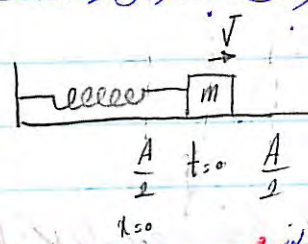 V
m
A/2 t=0 A/2
x=0